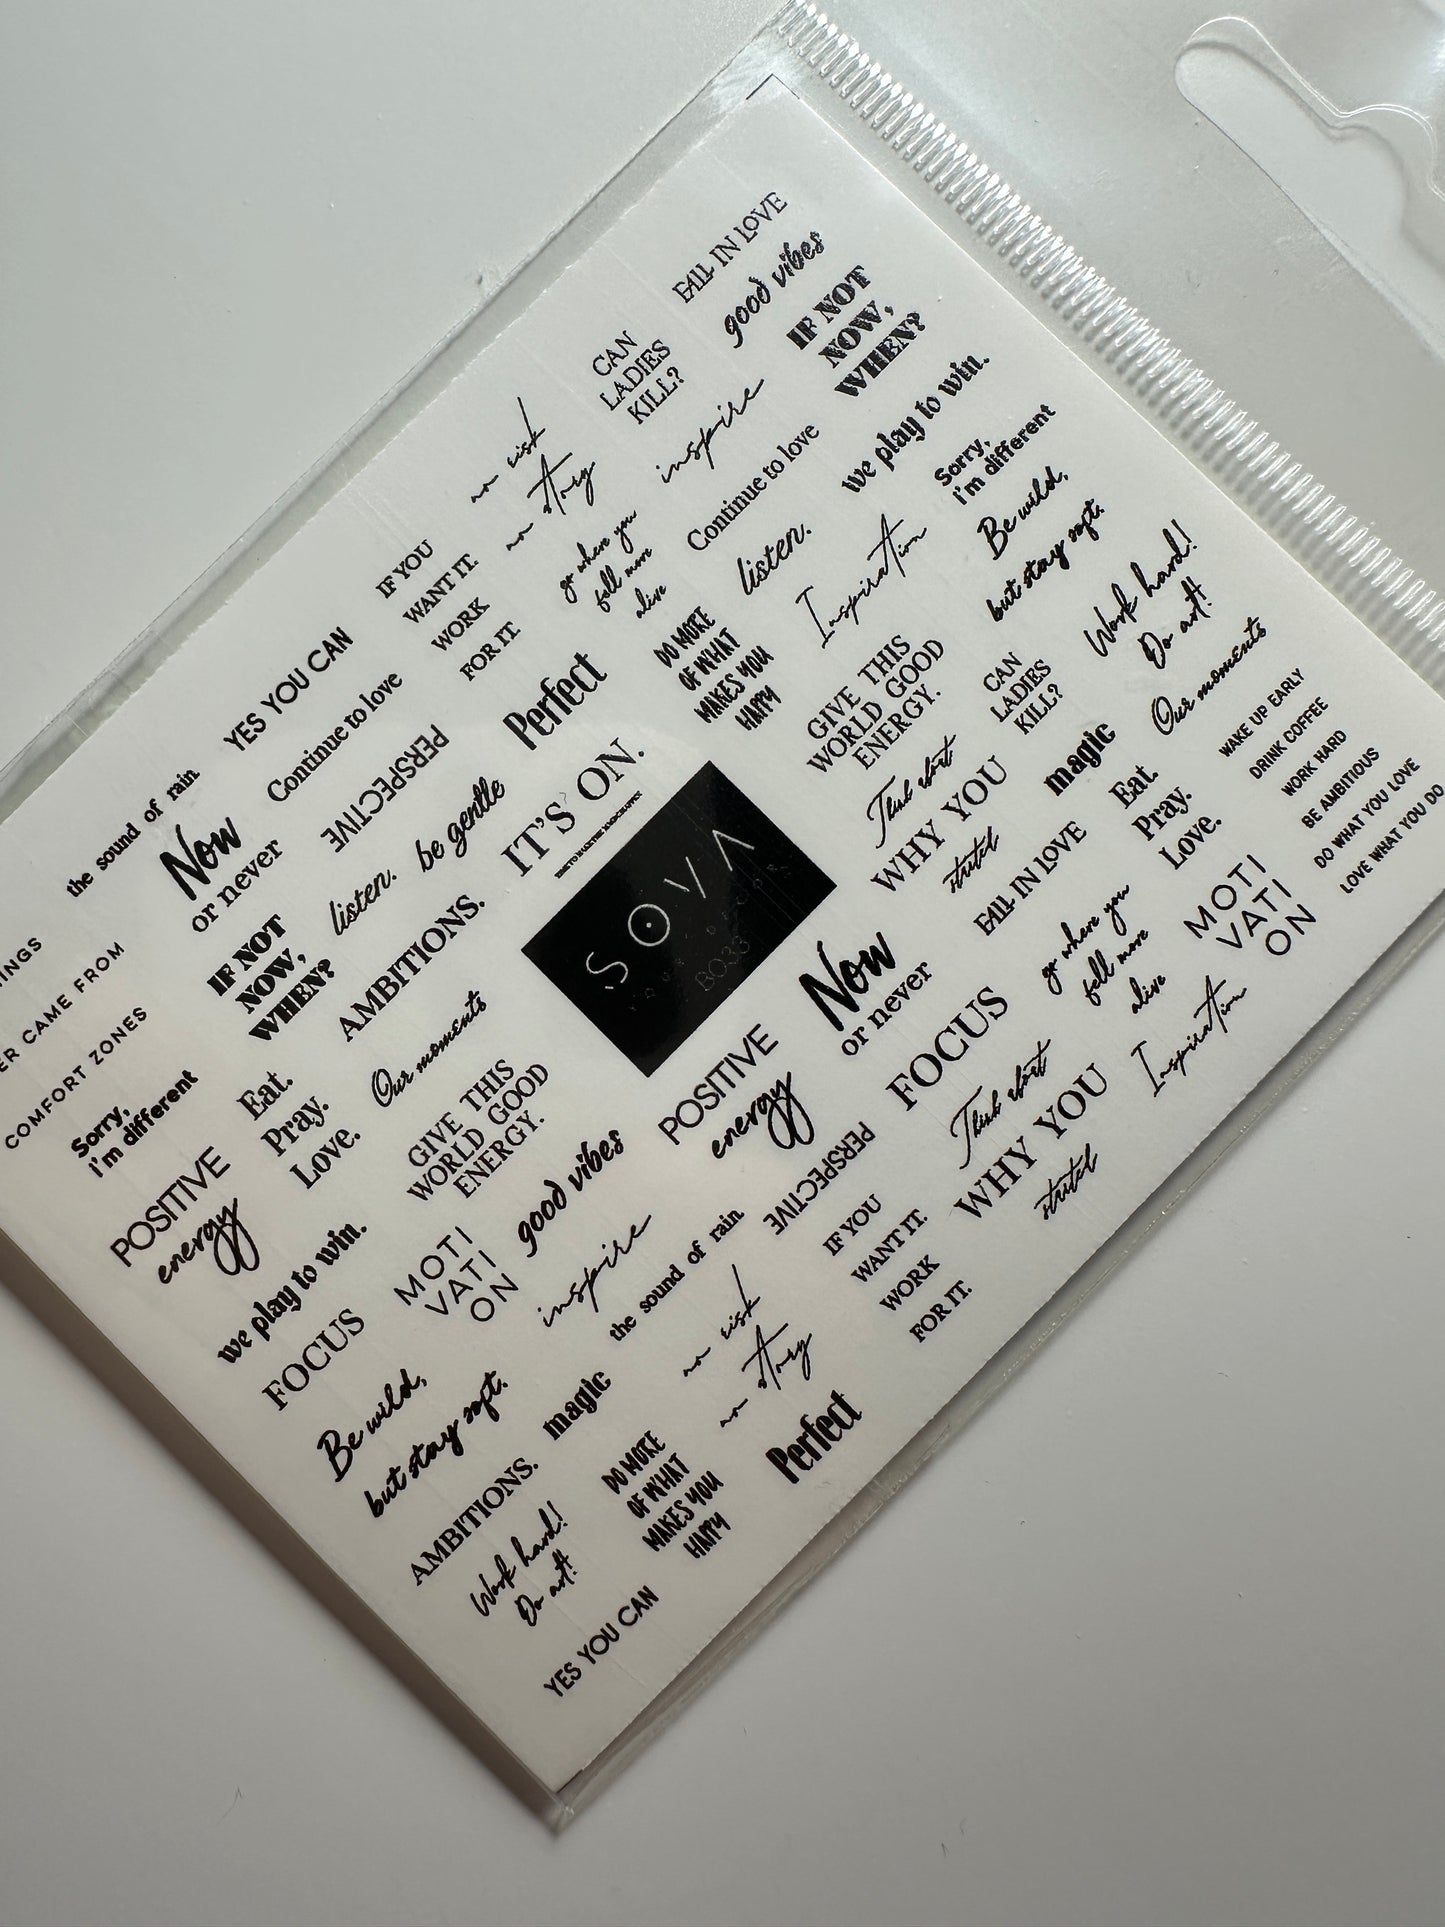 FALL IN LOVE
good vibes
IF NOT
NOW,
WHEN?
we play to win.
Sorry,
i'm different
Be wild,
but stay soft.
Work hard!
Do art!
Our moments
WAKE UP EARLY
DRINK COFFEE
WORK HARD
BE AMBITIOUS
DO WHAT YOU LOVE
LOVE WHAT YOU DO
CAN
LADIES
KILL?
inspire
Continue to love
listen.
Inspiration
GIVE THIS
WORLD GOOD
ENERGY.
CAN
LADIES
KILL?
magic
Eat.
Pray.
Love.
MOTI
VATI
ON
no risk
no story
go where you
fell more
alive
DO MORE
OF WHAT
MAKES YOU
HAPPY
Think about
WHY YOU
started
FALL IN LOVE
go where you
fell more
alive
Inspiration
IF YOU
WANT IT.
WORK
FOR IT.
Perfect
IT'S ON.
SOVA
B038
Now
or never
FOCUS
Think about
WHY YOU
started
YES YOU CAN
Continue to love
PERSPECTIVE
be gentle
AMBITIONS.
POSITIVE
energy
PERSPECTIVE
IF YOU
WANT IT.
WORK
FOR IT.
the sound of rain
Now
or never
listen.
Our moments
GIVE THIS
WORLD GOOD
ENERGY.
good vibes
inspire
the sound of rain
no risk
no story
Perfect
IF NOT
NOW,
WHEN?
Eat.
Pray.
Love.
MOTI
VATI
ON
magic
DO MORE
OF WHAT
MAKES YOU
HAPPY
INGS
ER CAME FROM
COMFORT ZONES
Sorry,
i'm different
POSITIVE
energy
we play to win.
FOCUS
Be wild,
but stay soft.
AMBITIONS.
Work hard!
Do art!
YES YOU CAN